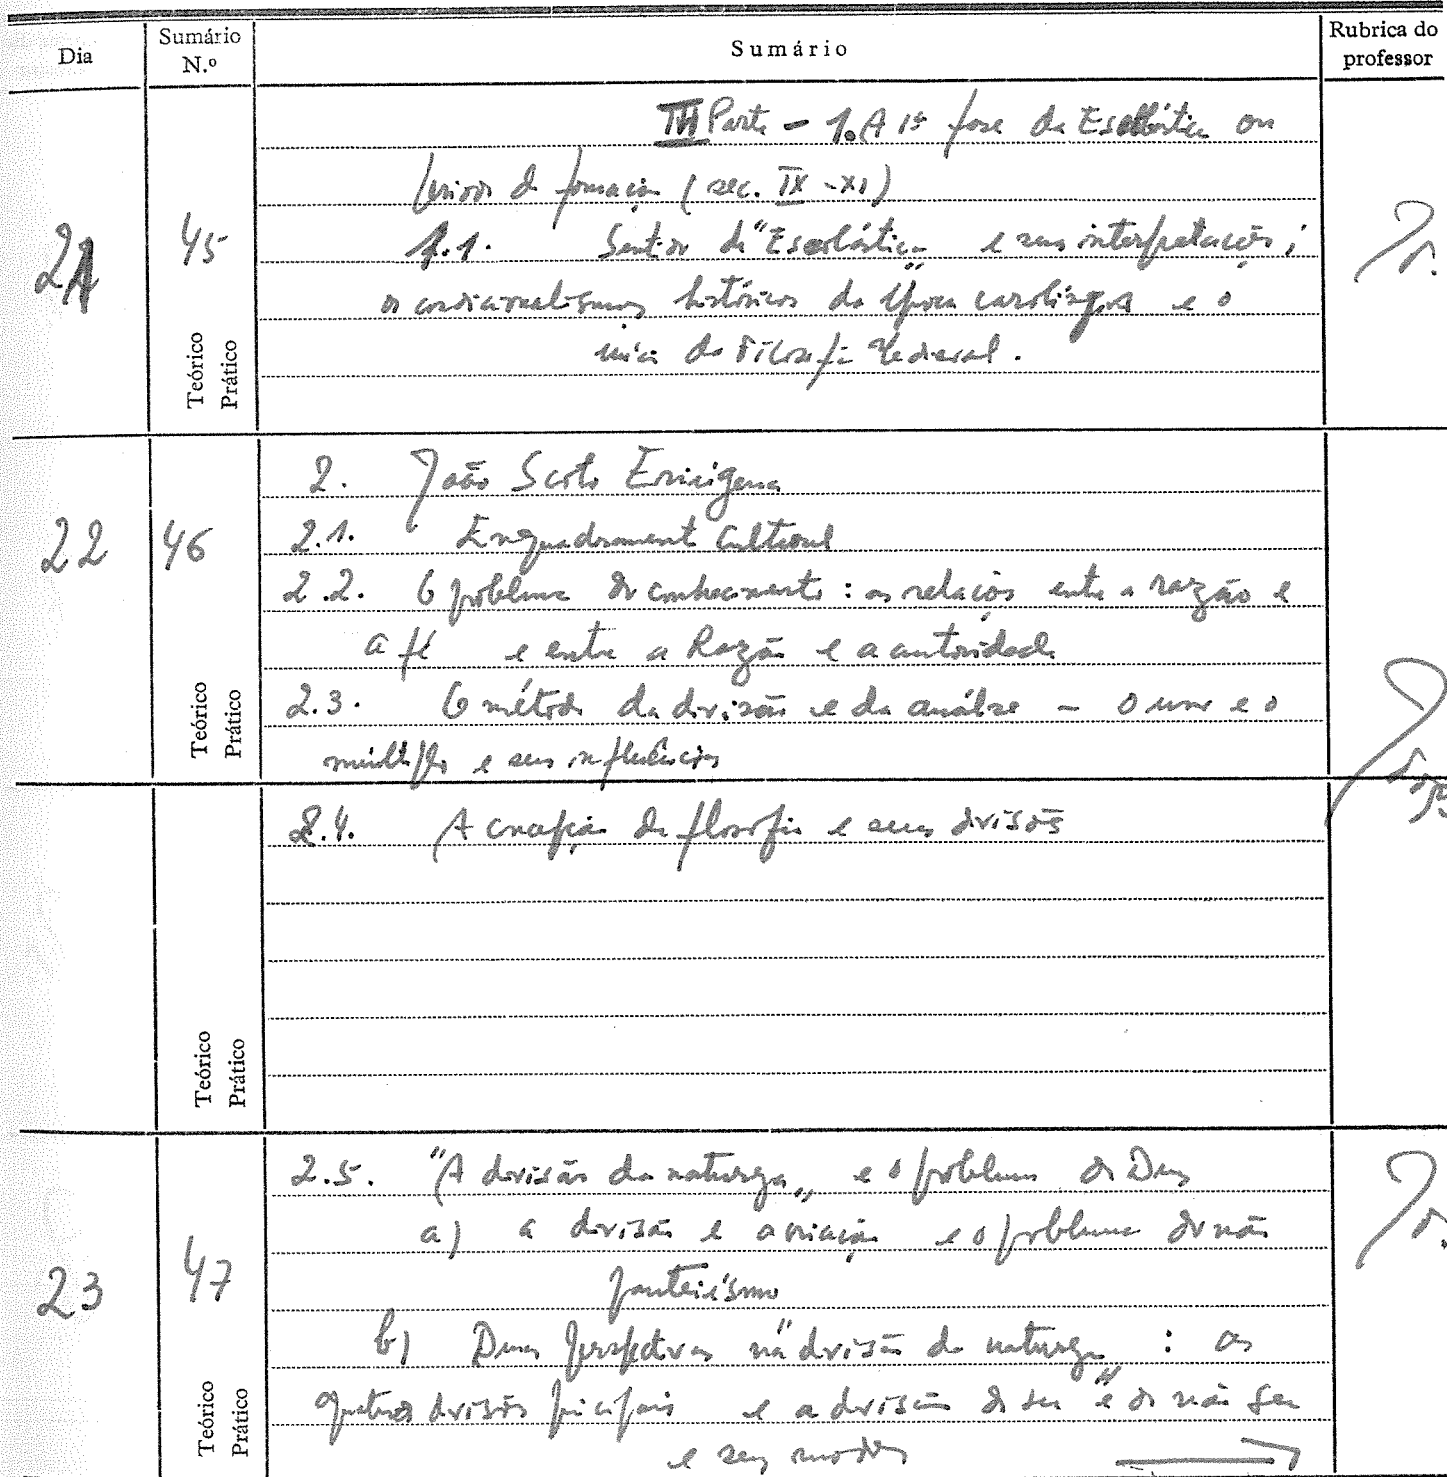 Dia
Sumário N.º
Sumário
Rubrica do professor
III Parte - 1. A 1ª fase da Escolástica ou
período de formação (sec. IX - XI)
21
45
1.1. Sentido de "Escolástica" e suas interpretações;
os condicionalismos históricos da época carolíngia e o
início da Filosofia Medieval.
Teórico
Prático
22
46
2. João Scoto Eriúgena
2.1. Enquadramento Cultural
2.2. O problema do conhecimento: as relações entre a razão e
a fé e entre a Razão e a autoridade
2.3. O método da divisão e da análise - o uno e o
múltiplo e suas influências
Teórico
Prático
2.4. A concepção de filosofia e suas divisões
Teórico
Prático
23
47
2.5. "A divisão da natureza" e o problema de Deus
a) a divisão e a criação e o problema do não
panteísmo
b) Duas perspectivas na "divisão da natureza": as
quatro divisões principais e a divisão do ser e do não ser
e seus modos
Teórico
Prático